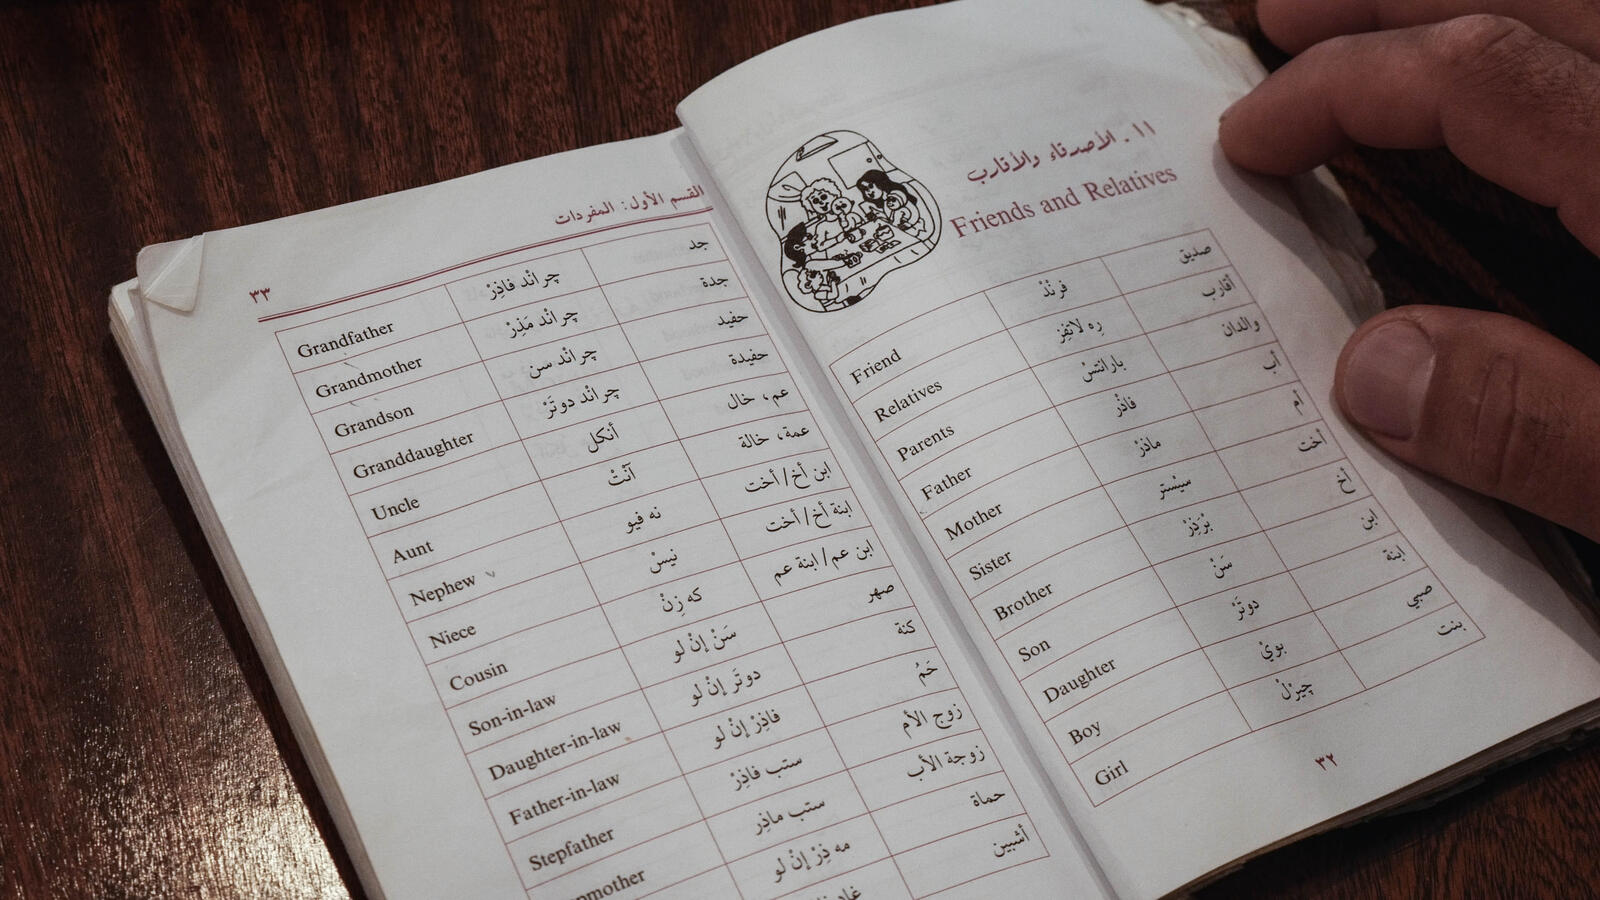 ١١ . الأصدقاء والأقارب
Friends and Relatives
صديق فرنْدْ Friend
أقارب رِه لاتِفِز Relatives
والدان بارانتسْ Parents
أب فاذْر Father
أم ماذَرْ Mother
أخت سيسْتر Sister
أخ بْرَذِرْ Brother
ابن سَنْ Son
ابنة دوتَرْ Daughter
صبي بويْ Boy
بنت چيرْلْ Girl
٣٢
القسم الأول: المفردات
٣٣
جد چراندْ فاذِرْ Grandfather
جدة چراندْ مَذِرْ Grandmother
حفيد چراندْ سن Grandson
حفيدة چراندْ دوتَرْ Granddaughter
عم، خال أنكل Uncle
عمة، خالة آنْتْ Aunt
ابن أخ/ أخت نه فيو Nephew
ابنة أخ/ أخت نيسْ Niece
ابن عم/ ابنة عم كه زِنْ Cousin
صهر سَنْ إنْ لو Son-in-law
كنة دوتَر إنْ لو Daughter-in-law
حَمُ فاذِرْ إنْ لو Father-in-law
زوج الأم ستب فاذِرْ Stepfather
زوجة الأب ستب ماذِر
حماة مه ذِرْ إنْ لو
أشبين